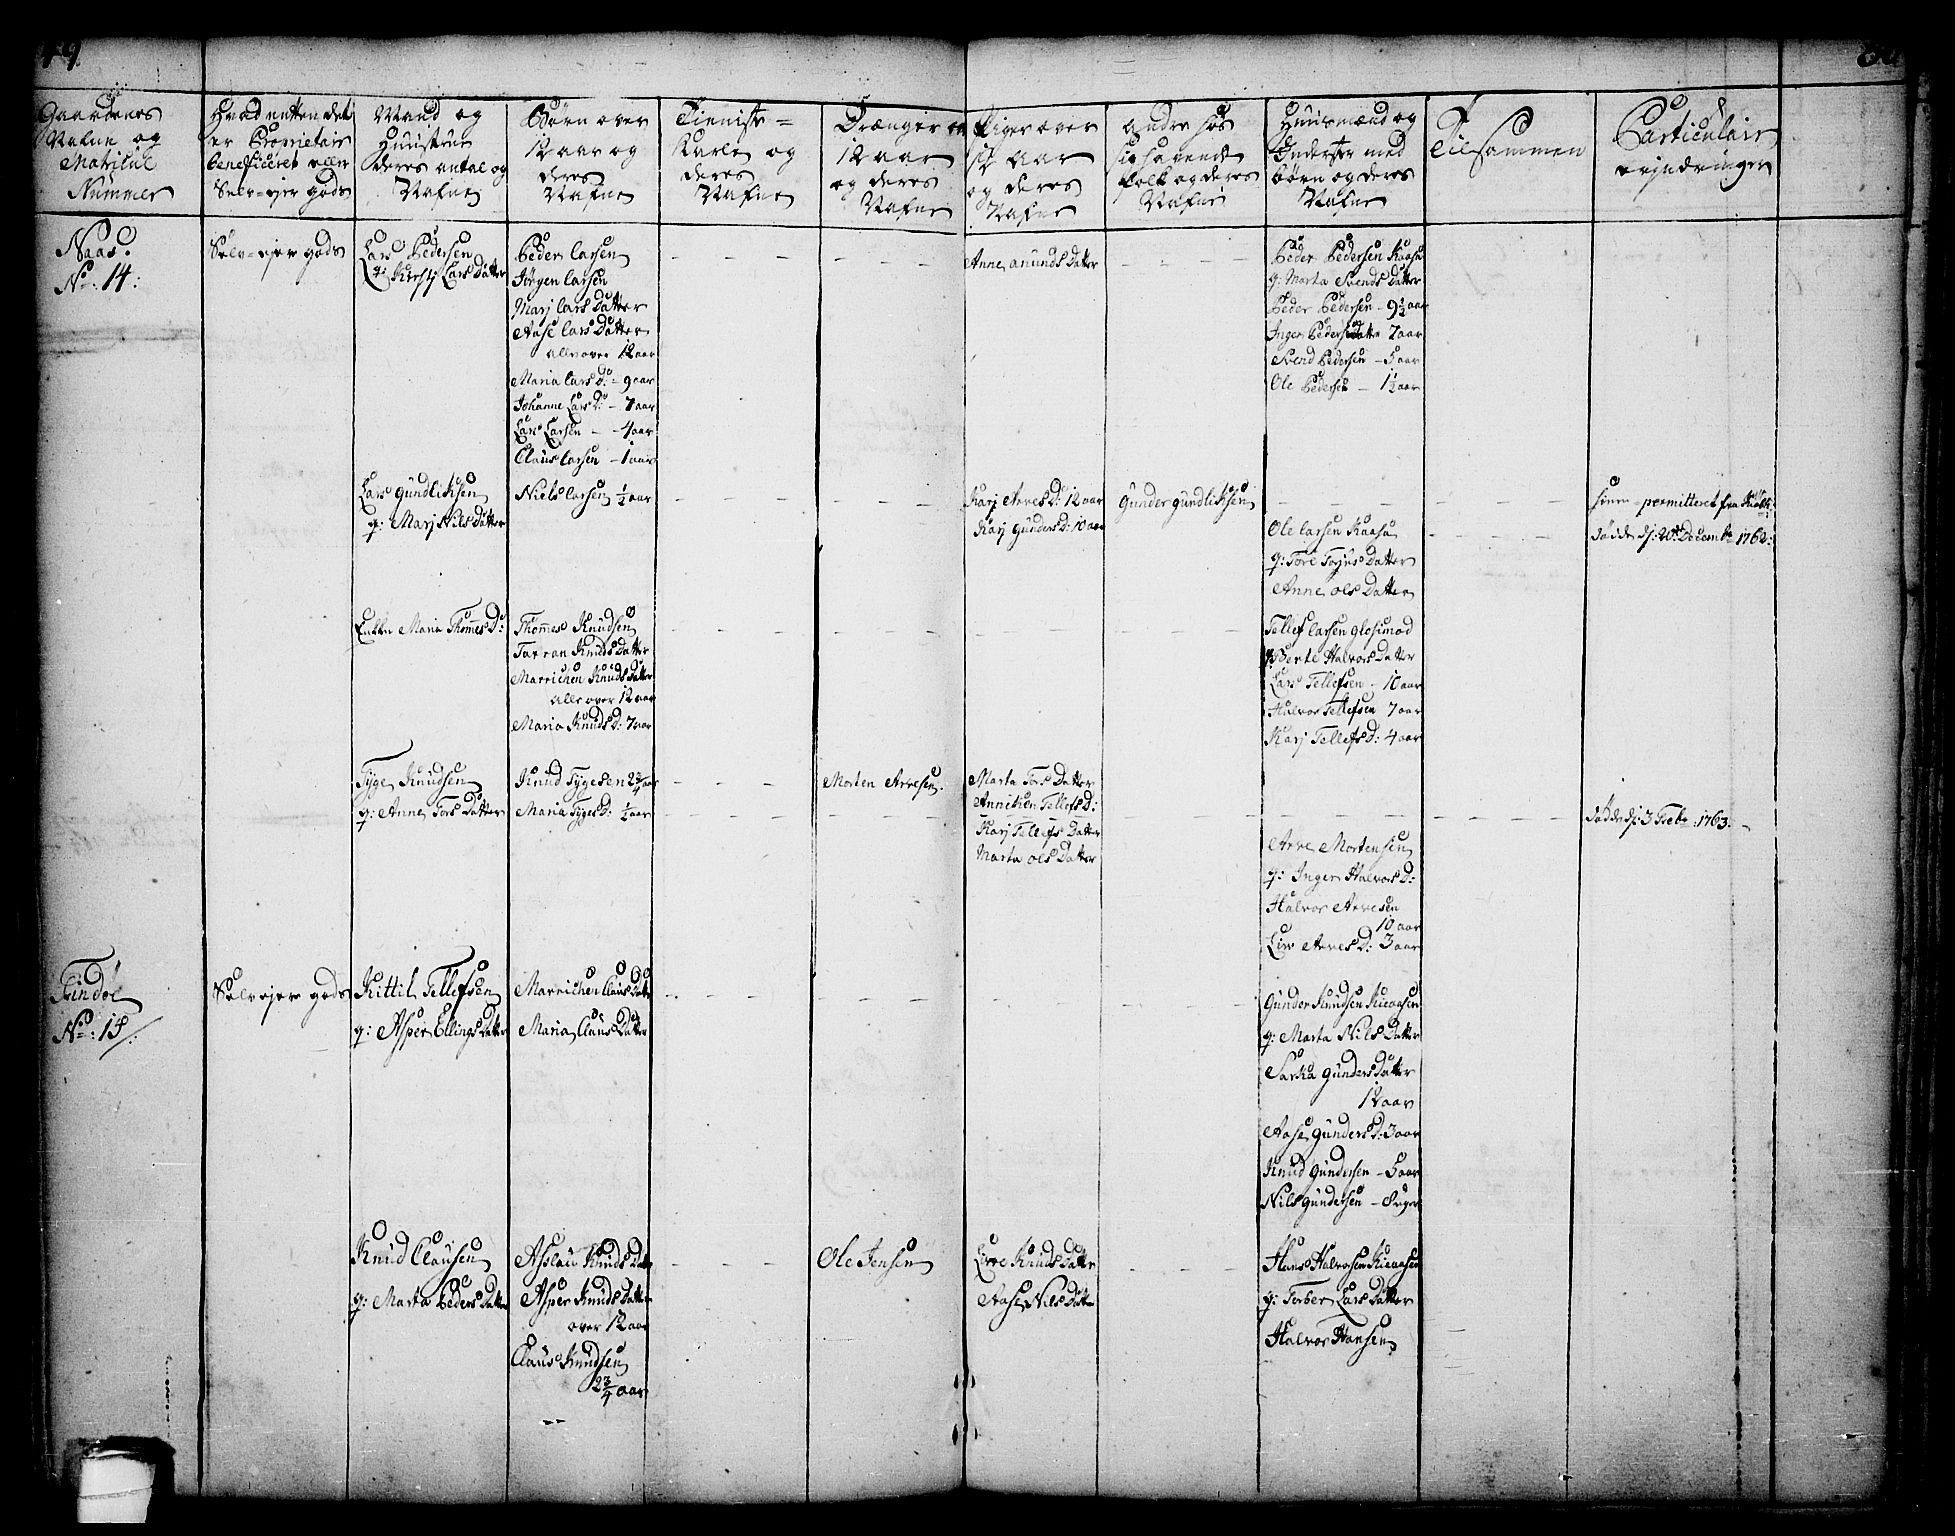 49
Gaardenes
Nafne og
Matricul
Nummer
Hvad enten det
er Proprietair
beneficeret eller
Selv-ejer gods
Mand og
Huustrue
deres antal og
Nafne
Børn over
12 aar og
deres
Nafne
Tieniste=
Karle og
deres
Nafne
Drænger
12 aar
og deres
Nafne
Piger over
12 aar
og deres
Nafne
andre hos
sig havende
folk og deres
Nafne
Huusmænd og
Inderster med
børn og deres
Nafne
Tilsammen
Particulair
Naas:
No: 14:
Selv-ejer gods
Lars Pedersen
q: Kirstj Lars Datter
Peder Larsen
Jörgen Larsen
Marj Lars Datter
Aase Lars Datter
alle over 12 aar
Maria Lars D: - 9 aar
Johanne Lars D: - 7 aar
Lars Larsen - 4 aar
Claus Larsen - 1 aar
Anne Amunds Datter
Peder Pedersen Kaasa
q: Marta Svends Datter
Peder Pedersen - 9½ aar
Inger Peders Datter 7 aar
Svend Pedersen - 5 aar
Ole Pedersen - 1½ aar
Lars Gundliksen
q: Marj Nils Datter
Niels Larsen ½ aar
Karj Arves D: 12 aar
Karj Gunders D: 10 aar
Gunder Gundliksen
permitteret fra
döde dj: 20de Decembr 1762:
Ole Larsen Kaasa
q: Tore Datter
Anne Ols Datter
Enken Maria Thomes D:
Thomes Knudsen
Tarran Knuds Datter
Marrichen Knuds Datter
alle over 12 aar
Maria Knuds D: 7 aar
Tellef Larsen Glosimod
q: Berte Halvors Datter
Lars Tellefsen - 10 aar
Halvor Tellefsen 7 aar
Karj Tellefs D: 4 aar
Tyge Knudsen
q: Anne Tors Datter
Knud Tygesen 2¾ aar
Maria Tyges D: ½ aar
Morten Arvesen
Marta Tors Datter
Anniken Tellefs D:
Karj Tellefs Datter
Marta Ols Datter
döde dj: 3 Febr: 1763.
Arve Mortensen
q: Inger Halvors D:
Halvor Arvesen
10 aar
Liv Arves D: 3 aar
Findöl
No: 15/:
Selv ejer gods
Kittil Tellefsen
q: Asper Ellings Datter
Marrichen Claus Datter
Maria Claus Datter
Gunder Knudsen Kieaasen
q: Marta Nils Datter
Gunders Datter
12 aar
Aase Gunders D: 3 aar
Knud Gundersen - 5 aar
Nils Gundersen - 8 uger
Knud Clausen
q: Marta Peders Datter
Aslau Knuds Datter
Asper Knuds Datter
over 12 aar
Claus Knudsen
2¾ aar
Ole Jensen
Live Knuds Datter
Aase Nils Datter
Hans Halvorsen Kieaasen
q: Torber Lars Datter
Halvor Hansen